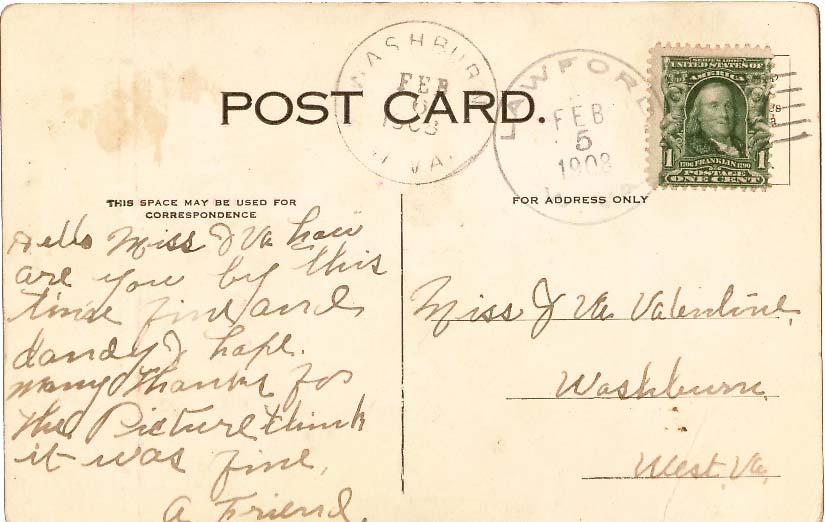 POST CARD.
WASHBURN
FEB
6
1908
W VA.
LAWFORD
FEB
5
1908
SERIES 1902
UNITED STATES OF
AMERICA
1 1
1706 FRANKLIN 1790
POSTAGE
ONE CENT
THIS SPACE MAY BE USED FOR
CORRESPONDENCE
FOR ADDRESS ONLY
Hello Miss I Va how
are you by this
time fine and
dandy I hope.
Many thanks for
the Picture think
it was fine,
A Friend.
Miss I Va Valentine,
Washburn,
West Va,